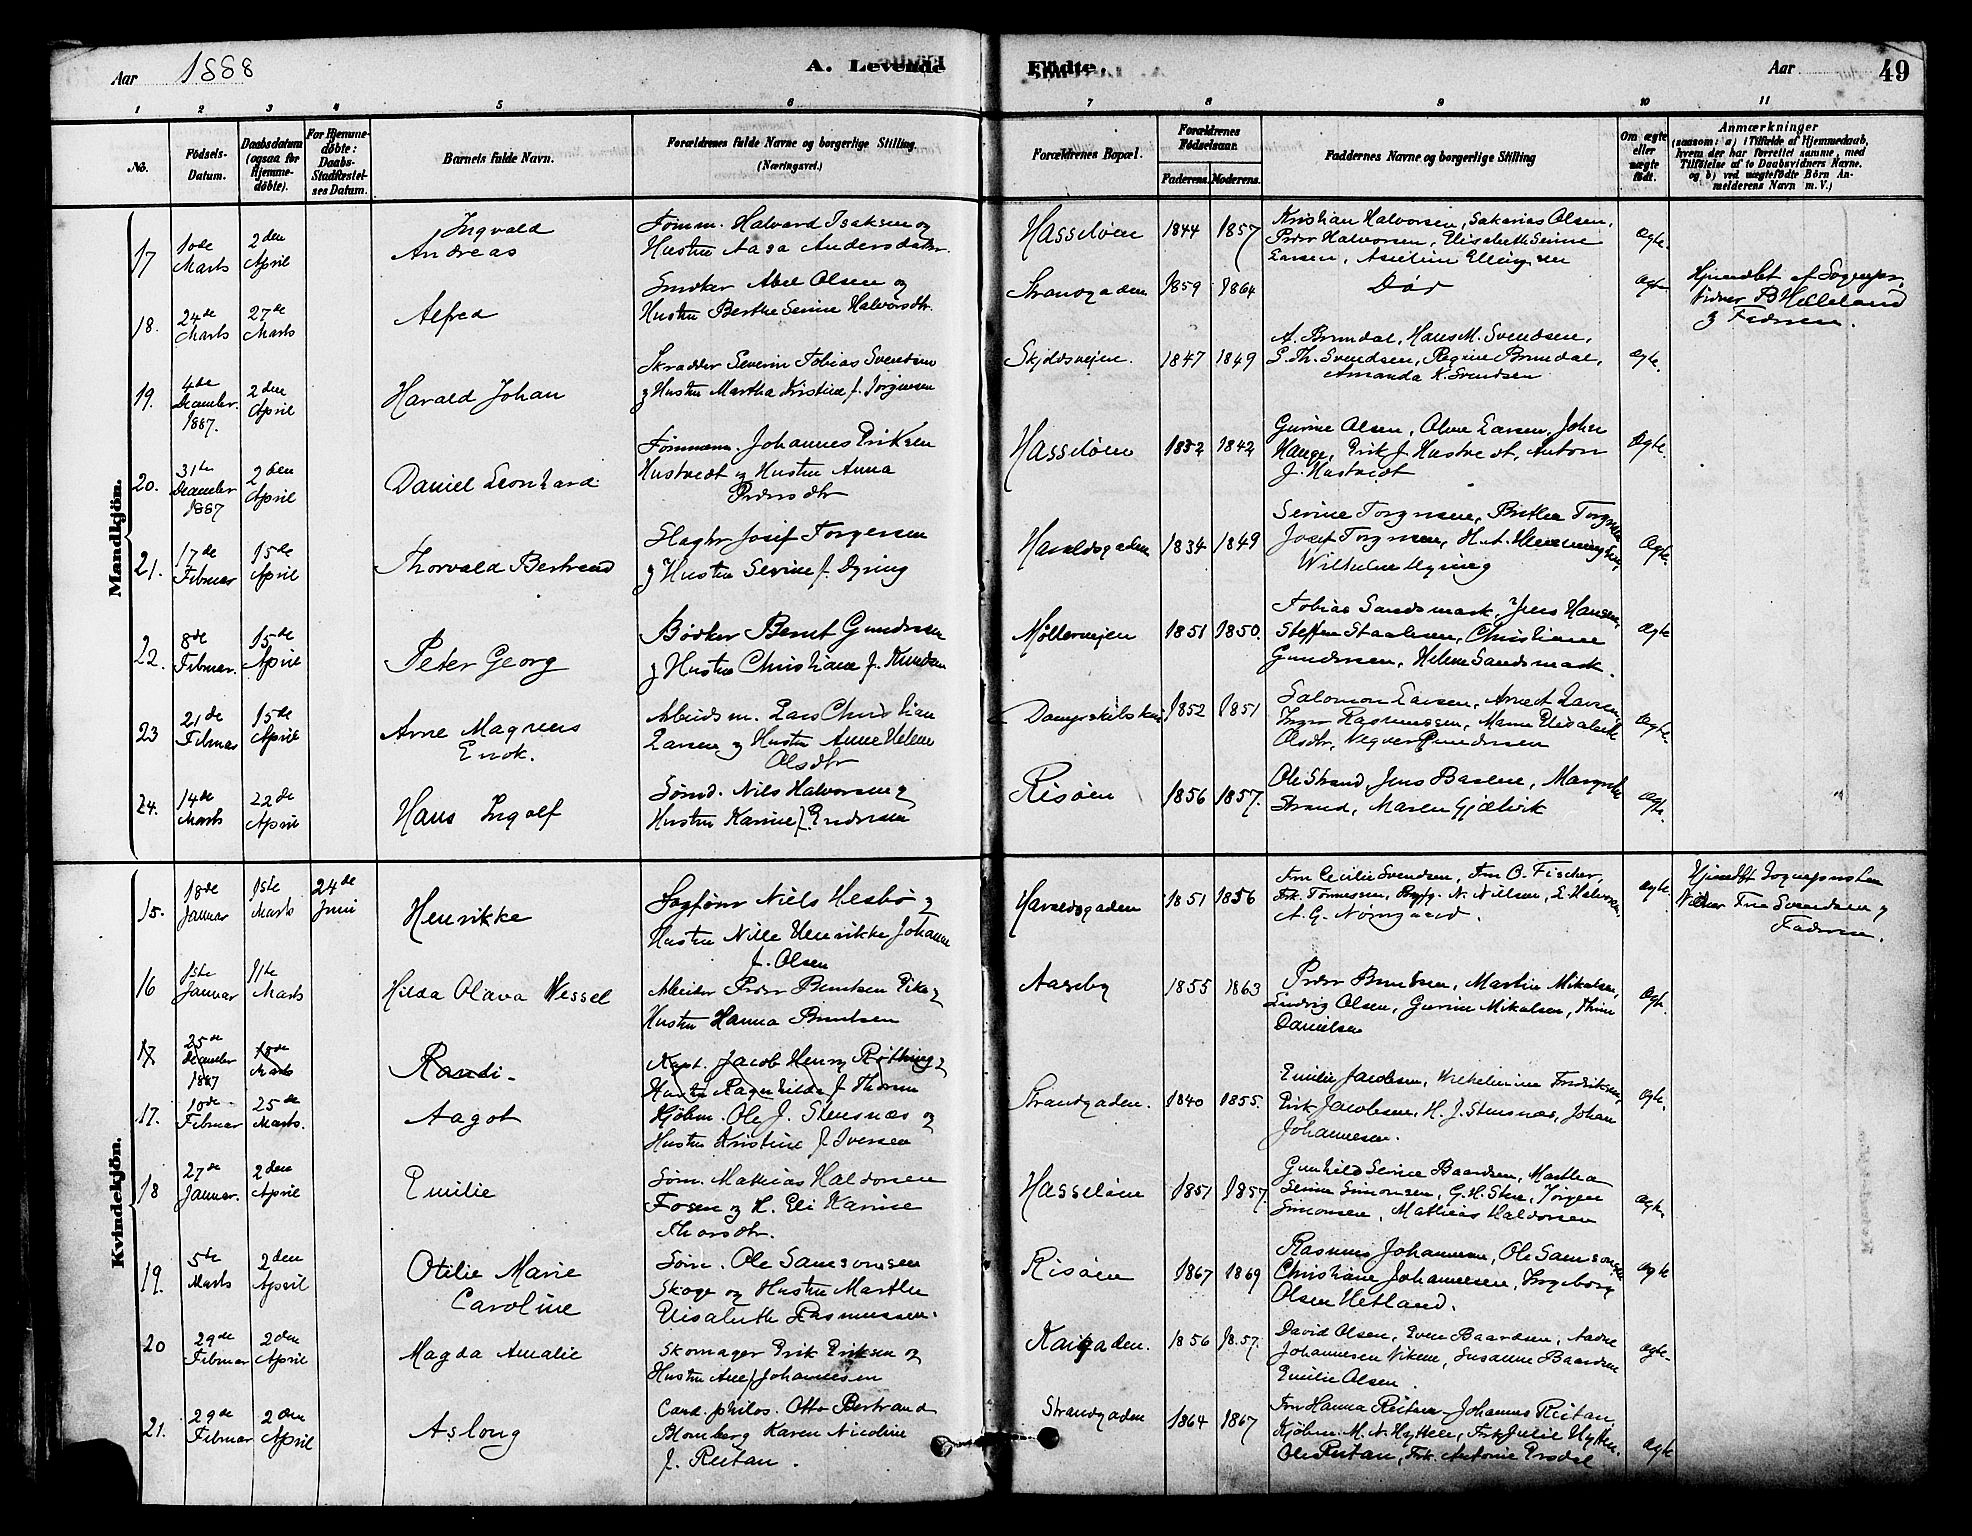 Aar 1888
A. Levende
Fødte.
Aar
49
1 2 3 4 5 6 7 8 9 10 11
No.
Födsels-
Datum.
Daabsdatum
(ogsaa for
Hjemme-
döbte).
For Hjemme-
döbte:
Daabs-
Stadfæstel-
ses Datum.
Barnets fulde Navn.
Forældrenes fulde Navne og borgerlige Stilling.
(Næringsvei.)
Forældrenes Bopæl.
Forældrenes
Födselsaar.
Faderens. Moderens.
Faddernes Navne og borgerlige Stilling
Om ægte
eller
uægte
födt.
Anmærkninger
(saasom: a) i Tilfælde af Hjemmedaab,
hvem der har forrettet samme, med
Tilföielse af to Daabsvidners Navne.
og b) ved uægtefödte Börn An-
melderens Navn m. V.)
Mandkjön.
17
10de Marts
2den April
Ingvald
Andreas
Tømm. Halvard Isaksen og
Hustru Aasa Andersdatter
Hasseløen
1844 1857
Kristian Halvorsen, Sakarias Olsen,
Peder Halvorsen, Elisabeth Serine
Larsen, Aseline Ellingsen
Ægte.
18.
24de Marts
27de Marts
Alfred
Snedker Abel Olsen og
Hustru Berthe Serine Halvorsdtr.
Strandgaden
1859 1864
Død
Ægte
Hjemdbt af Sognepr.
Vidner B Helleland
og Faderen.
19.
4de December 1887.
2den April
Harald Johan
Skrædder Severin Tobias Svendsen
og Hustru Martha Kristine f. Jørgensen
Skjoldsveien.
1847 1849
A. Bremdal, Hans M. Svendsen,
S. Th. Svendsen, Regine Bremdal,
Amanda K. Svendsen
Ægte.
20.
31te December 1887
2den April
Daniel Leonhard
Tømmerm. Johannes Eriksen
Hustvedt og Hustru Anna
Pedersdtr
Hasseløen
1832 1842
Gurine Olsen, Oline Larsen, John
Hauge, Erik J. Hustvedt, Anton
J. Hustvedt
Ægte.
21.
17de Februar
15de April
Thorvald Bertrand
Slagter Josef Torgersen
og Hustru Serine f. Dyring
Haraldsgaden
1834 1849
Serine Torgersen, Berthe Torgersen
Josef Torgersen, H. A. Henningsen,
Wilhelm Dyring
Ægte.
22.
8de Februar.
15de April
Peter Georg
Bødker Bernt Gundersen
og Hustru Christiane f. Knudsen
Møllerveien
1851 1850.
Tobias Sandsmark, Jens Hansen,
Steffen Staalesen, Christiane
Gundersen, Helene Sandsmark.
Ægte
23
21de Februar
15de April
Arne Magnus
Enok.
Arbeidsm. Lars Christian
Larsen og Hustru Anne Helene
Olsdtr
1852 1851
Salomon Larsen, Arnt Larsen,
Inger Rasmussen, Marie Elisabeth
Olsdtr, Gundersen
Ægte.
24.
14de Marts
22de April
Hans Ingolf
Sømd. Nils Halvorsen og
Hustru Karine f. Endresen
Risøen
1856 1857.
Ole Strand, Jens Baslene, Margrethe
Strand, Maren Gjælvik
Ægte.
Kvindekjön.
15.
18de Januar
1ste Marts
24de Juni
Henrikke
Sagfører Niels Hesbø og
Hustru Nille Henrikke Johanne
f. Olsen
Haraldsgaden
1851 1856
Fru Cecilie Svendsen, Fru O. Fischer,
Frk. Tønnessen, N. Nilsen, L. Halvorsen,
A. G. Normgaard.
Ægte.
Hjemdbt Sognepresten
Vidner Fru Svendsen og
Faderen.
16
1ste Januar
11te Marts
Hilda Olava Wessel
Arbeider Peder Berntsen Eike og
Hustru Hanna Berntsen
Aaseby
1855 1863
Peder Berntsen, Martin Mikalsen,
Ludvig Olsen, Gurine Mikalsen, Thine
Danielsen
Ægte.
17
25de December 1887
18de Marts
Randi.
Kapt. Jacob Henry Røthing og
Hustru Ragnhilda f. Thorsen
17.
10de Februar
25de Marts.
Aagot
Kjøbm. Ole J. Stensnæs og
Hustru Kristine f. Iversen
Strandgaden.
1840 1855.
Emilie Jacobsen, Wilhelmine Fredriksen,
Erik Jacobsen, H. J. Stensnæs, Johan
Johannesen.
Ægte.
18
27de Januar.
2den April
Emilie
Søm. Mathias Haldorsen
Fosen og H. Eli Karine
Thorsdtr.
Hasseløen
1851 1857.
Gunhild Serine Baardsen, Martha
Serine Simonsen, G. H. Stene, Jørgen
Simonsen, Mathias Haldorsen
Ægte.
19.
5te Marts
2den April
Otilie Marie
Caroline
Søm. Ole Samsonsen
Skoge og Hustru Marthe
Elisabeth Rasmussen.
Risøen
1867 1869
Rasmus Johannesen, Ole Samsonsen
Christiane Johannesen, Ingeborg
Olsen Hetland.
Ægte
20
29de Februar
2den April
Magda Amalie
Skomager Erik Eriksen og
Hustru Ane f. Johannesen
Kaigaden.
1856 1857.
David Olsen, Even Baardsen, Aadne
Johannesen Vikene, Susanne Baardsen
Emilie Olsen.
Ægte.
21.
29de Februar
2den April
Aslong
Cand. philos. Otto Bertrand
Blomberg Karen Nicoline
f. Reitan.
Strandgaden
1864 1867
Fru Hanna Reitan, Johannes Reitan,
Kjøbm. M. N. Hytten, Frk Julie Hytten,
Ole Reitan, Frk. Antonie Brodal
Ægte